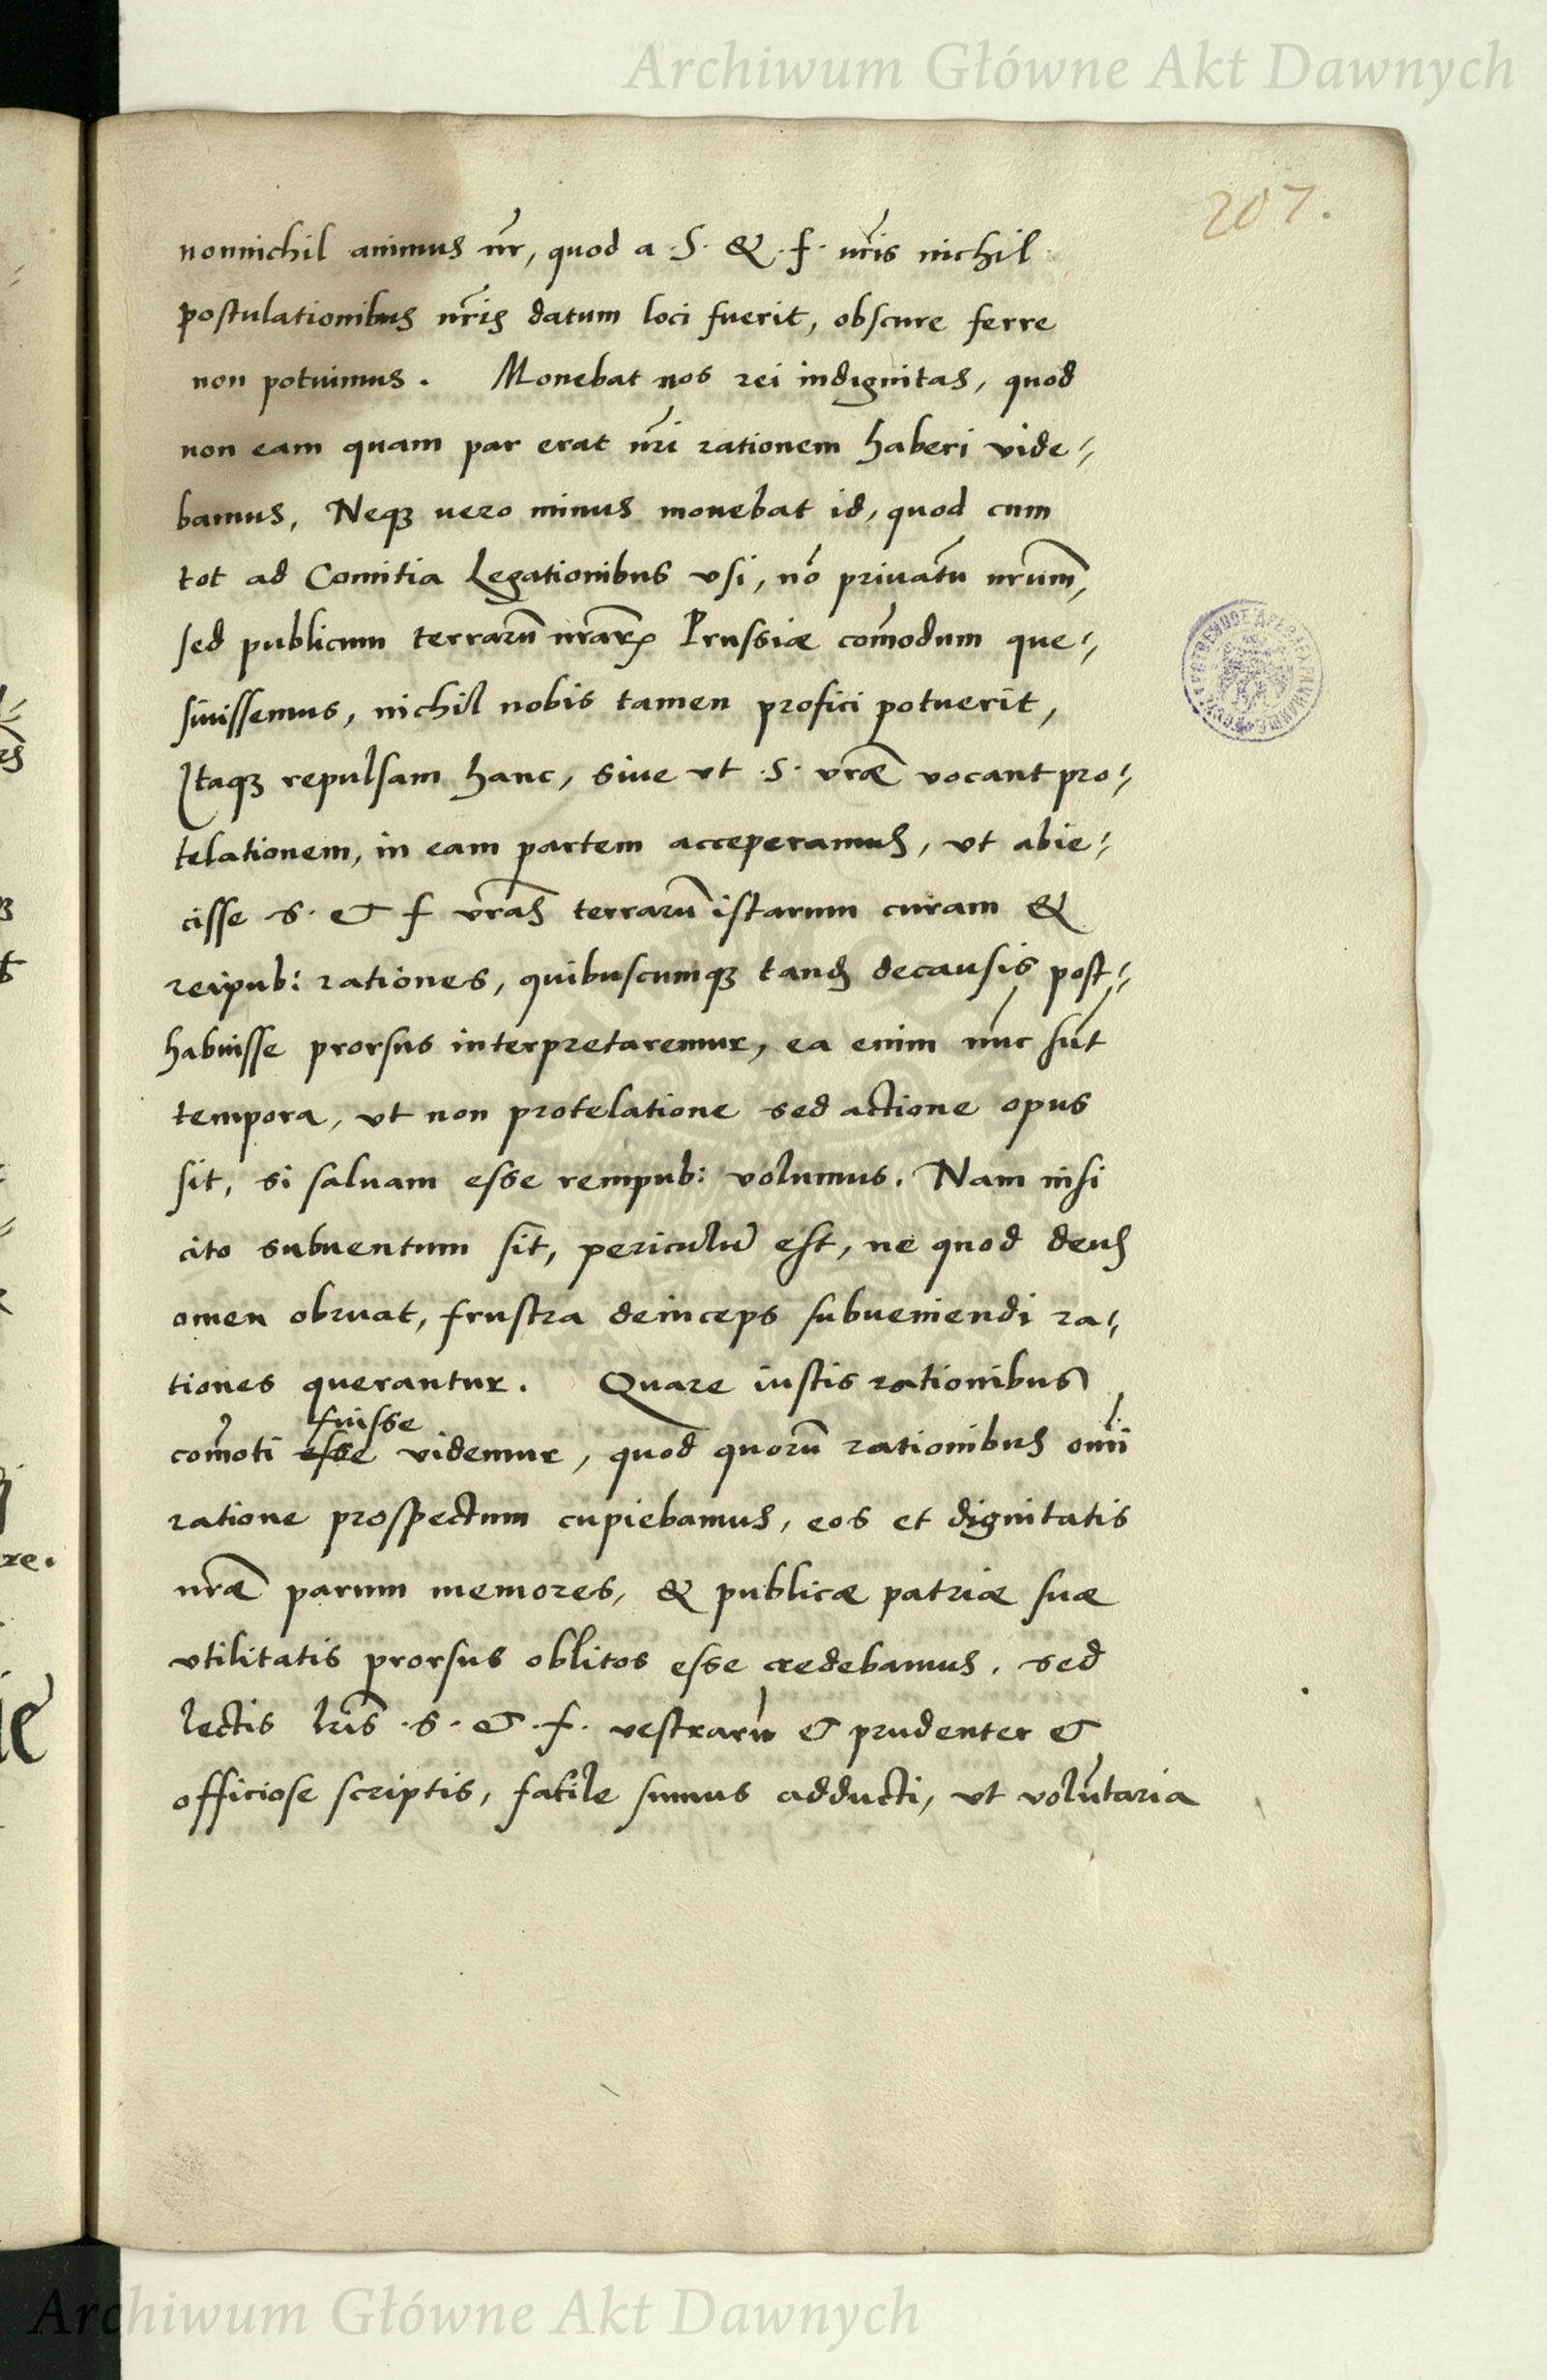 Archiwum Główne Akt Dawnych
207.
nonnichil animus nr̃, quod a .S. & .f. vr̃is nichil
postulationibus nr̃is datum loci fuerit, obscure ferre
non potuimus. Monebat nos rei indignitas, quod
non eam quam par erat nr̃i rationem haberi vide-
bamus, Neqꝫ uero minus monebat id, quod cum
tot ad Comitia Legationibus vsi, nõ priuatũ nr̃um,
sed publicum terrarũ nr̃arꝝ Prussiæ com̃odum que-
siuissemus, nichil nobis tamen profici potuerit,
Itaqꝫ repulsam hanc, siue vt .S. vr̃æ vocant pro-
telationem, in eam partem acceperamus, vt abie-
cisse S. & f vr̃as terrarũ istarum curam &
reipub: rationes, quibuscumqꝫ tandẽ decausis post-
habuisse prorsus interpretaremur, ea enim nũc sũt
tempora, vt non protelatione sed actione opus
sit, si saluam esse rempub: volumus. Nam nisi
cito subuentum sit, periculũ est, ne quod deus
omen obruat, frustra deinceps subueniendi ra-
tiones querantur. Quare iustis rationibus
fuisse
com̃oti esse videmur, quod quorũ rationibus om̃i
ratione prospectum cupiebamus, eos et dignitatis
nr̃æ parum memores, & publicæ patriæ suæ
vtilitatis prorsus oblitos esse credebamus. sed
lectis lr̃is .S. & .f. vestrarũ & prudenter &
officiose scriptis, facile sumus adducti, vt volũtaria
Archiwum Główne Akt Dawnych